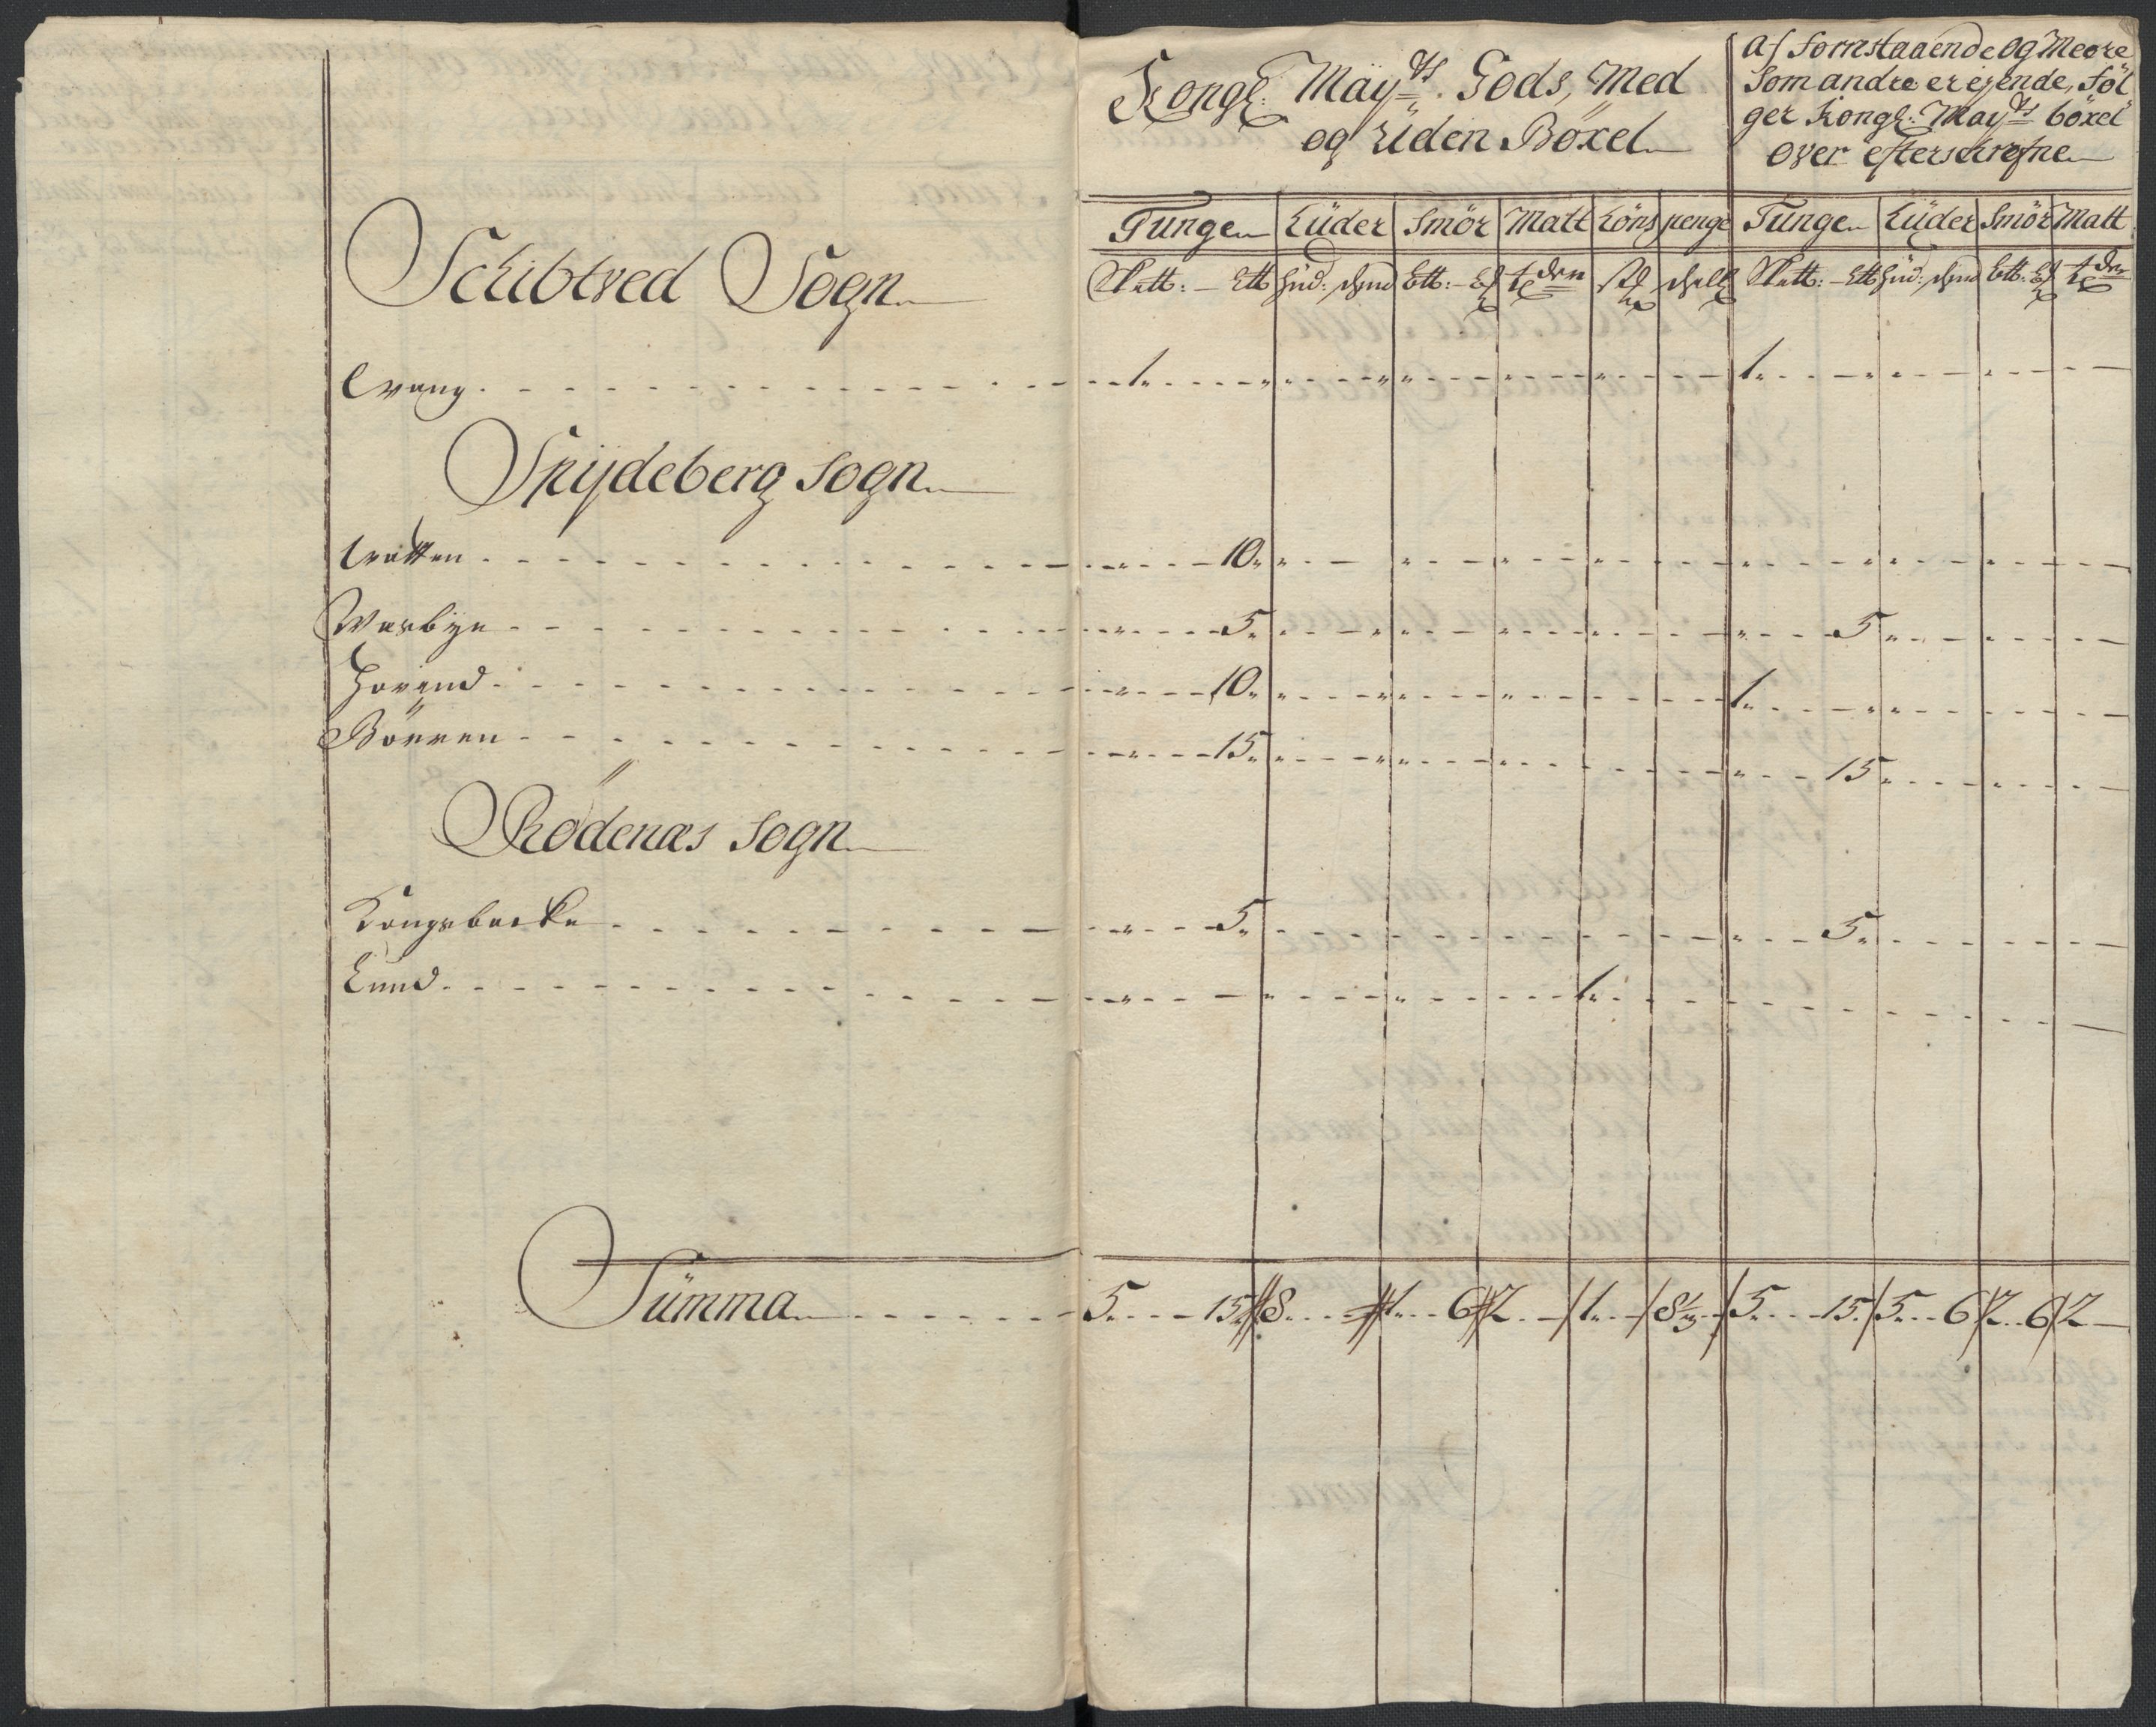 Kongl: May^ts. Gods, Med
og Uden Böxel
af fornstaaende og Meere
Som andre er ejende, föl
ger Kongl: May^ts böxel
over efterschrefne
Tunge Hüder Smör Malt Löns penge Tunge Hüder Smör Malt
Skett: - Ett hud: Skett: - Ett hud:
Schibtved Sogn
1. 1.
Spydeberg Sogn
10.
5. 5.
10. 1.
Börren 15. 15
Rödenæs Sogn
Kongsbacke 5. 5.
Lund 1.
Summa 5. 15 8. 1. 6 2. 1. 8 1/3 5. 15. 5. 6 2. 6 2